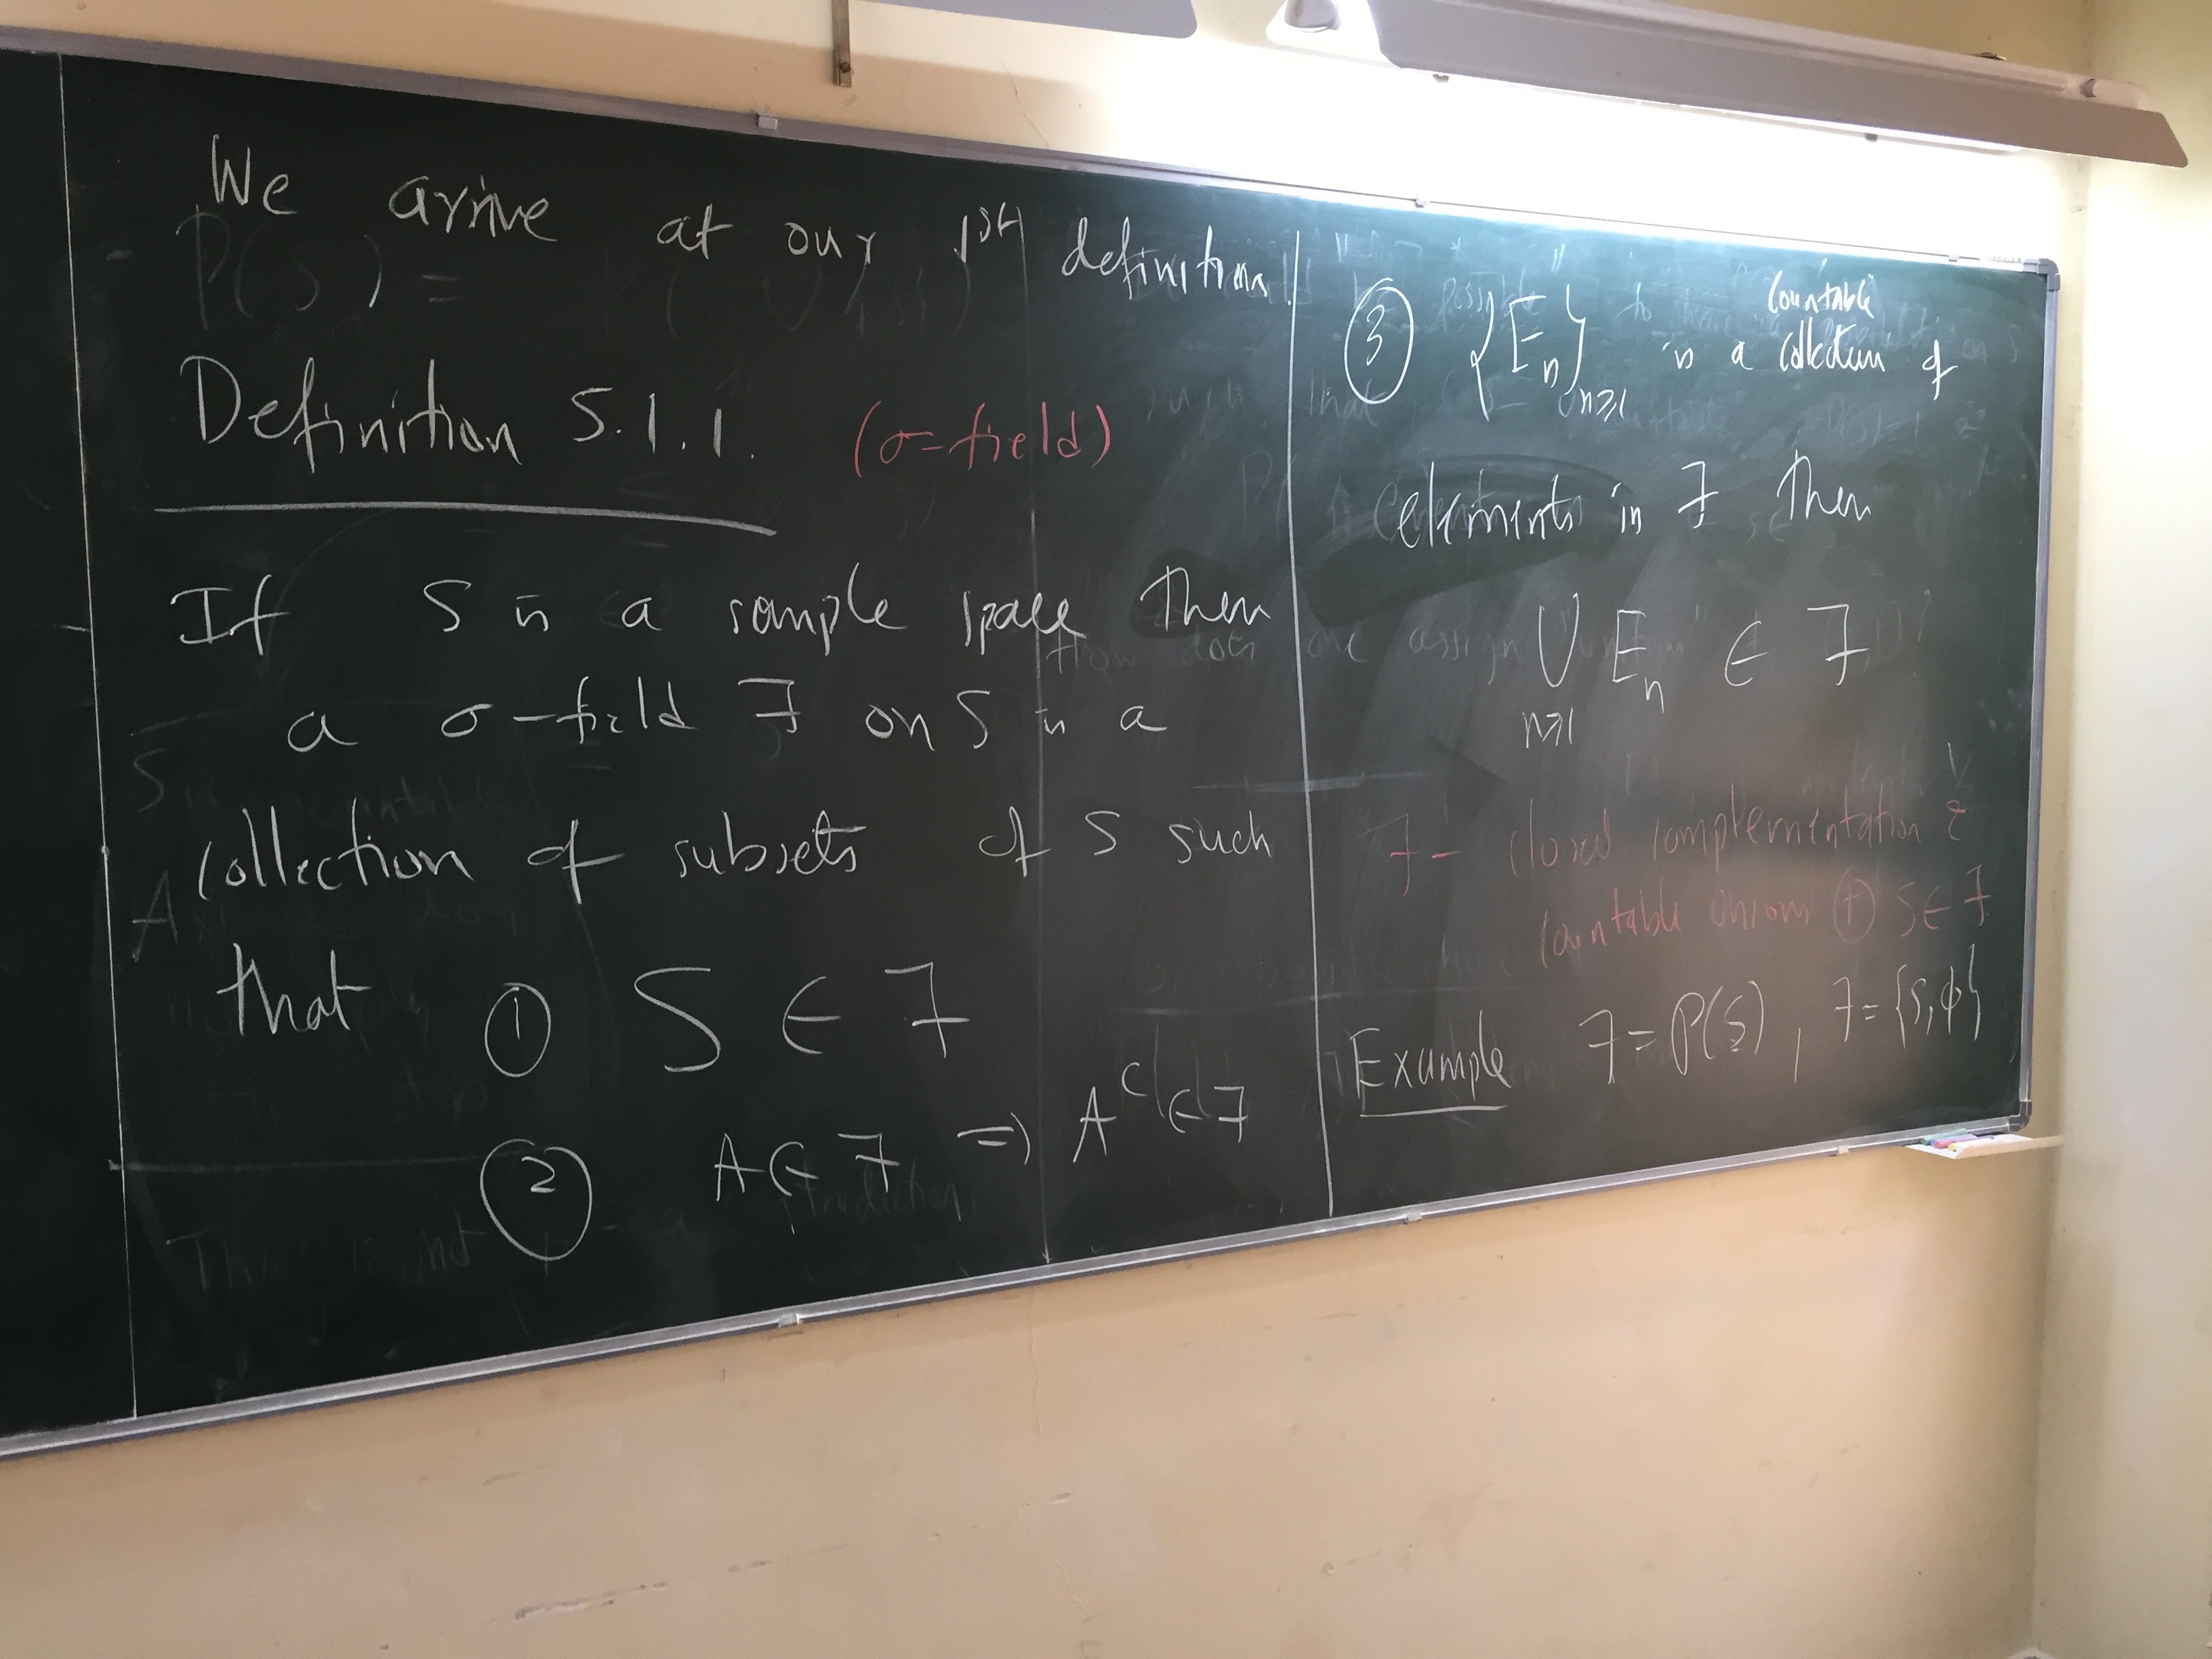 We arrive at our 1st definition.
Definition 5.1.1. (σ-field)
If S is a sample space then
a σ-field F on S is a
collection of subsets of S such
that ① S ∈ F
② A ∈ F ⇒ A^c ∈ F
③ {E_n}_{n≥1} is a countable collection of
elements in F then
⋃_{n≥1} E_n ∈ F
F - closed complementation &
countable unions ⊕ S ∈ F
Example F = P(S), F = {S, φ}